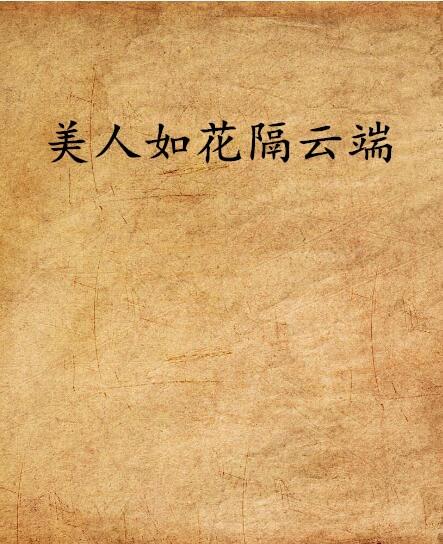 美人如花隔云端